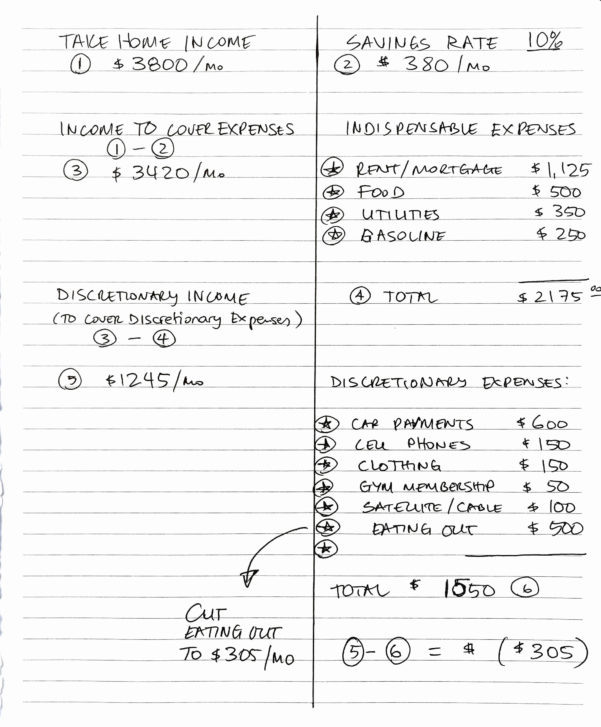 TAKE HOME INCOME
① $3800/Mo
INCOME TO COVER EXPENSES
① - ②
③ $3420/Mo
DISCRETIONARY INCOME
(TO COVER Discretionary Expenses)
③ - ④
⑤ $1245/Mo
SAVINGS RATE 10%
② $380/Mo
INDISPENSABLE EXPENSES
RENT/MORTGAGE $1,125
FOOD $500
UTILITIES $350
GASOLINE $250
④ TOTAL $2175 00
DISCRETIONARY EXPENSES:
CAR PAYMENTS $600
CELL PHONES $150
CLOTHING $150
GYM MEMBERSHIP $50
SATELLITE/CABLE $100
EATING OUT $500
TOTAL $1550 ⑥
⑤ - ⑥ = $ ($305)
CUT
EATING OUT
TO $305/MO